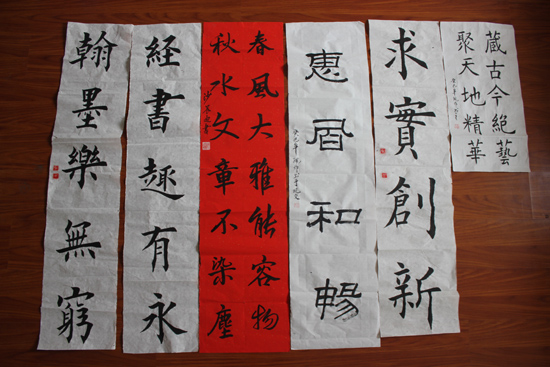 藏古今絕藝
聚天地精華
求實創新
惠風和暢
春風大雅能容物
秋水文章不染塵
經書趣有永
翰墨樂無窮